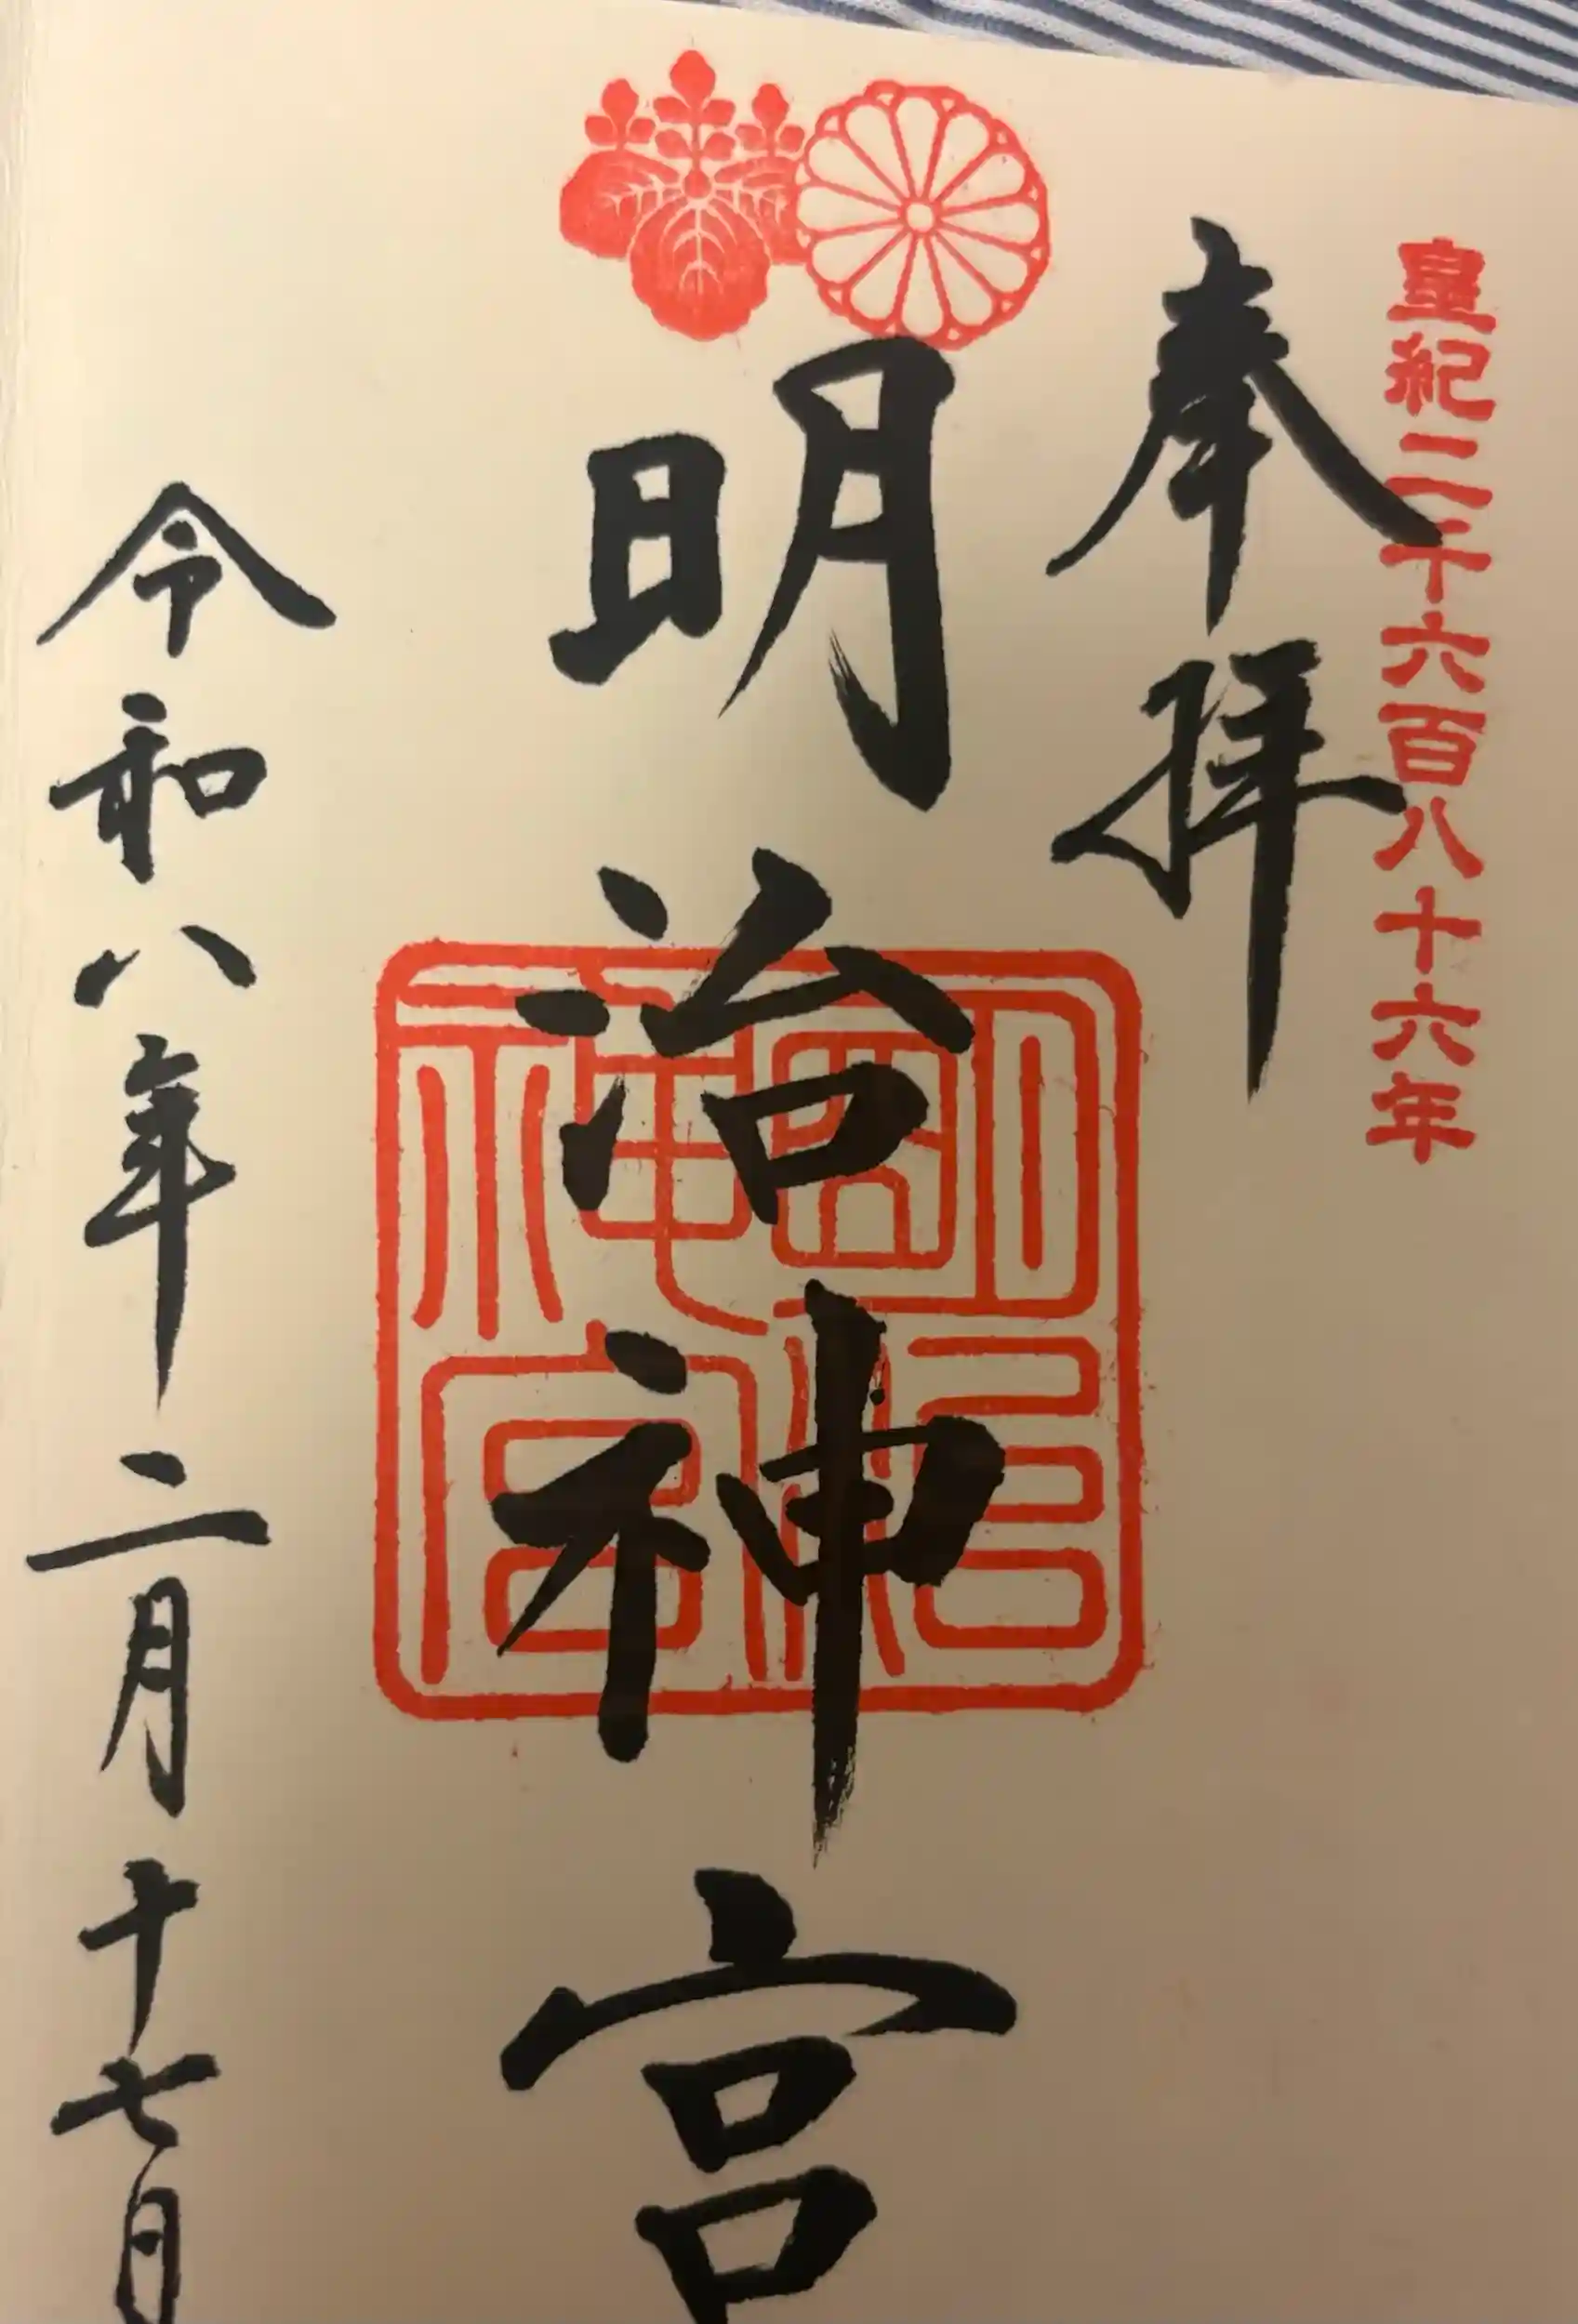 皇紀二千六百八十六年
奉拝
明治神宮
明治神宮
令和八年二月十七日